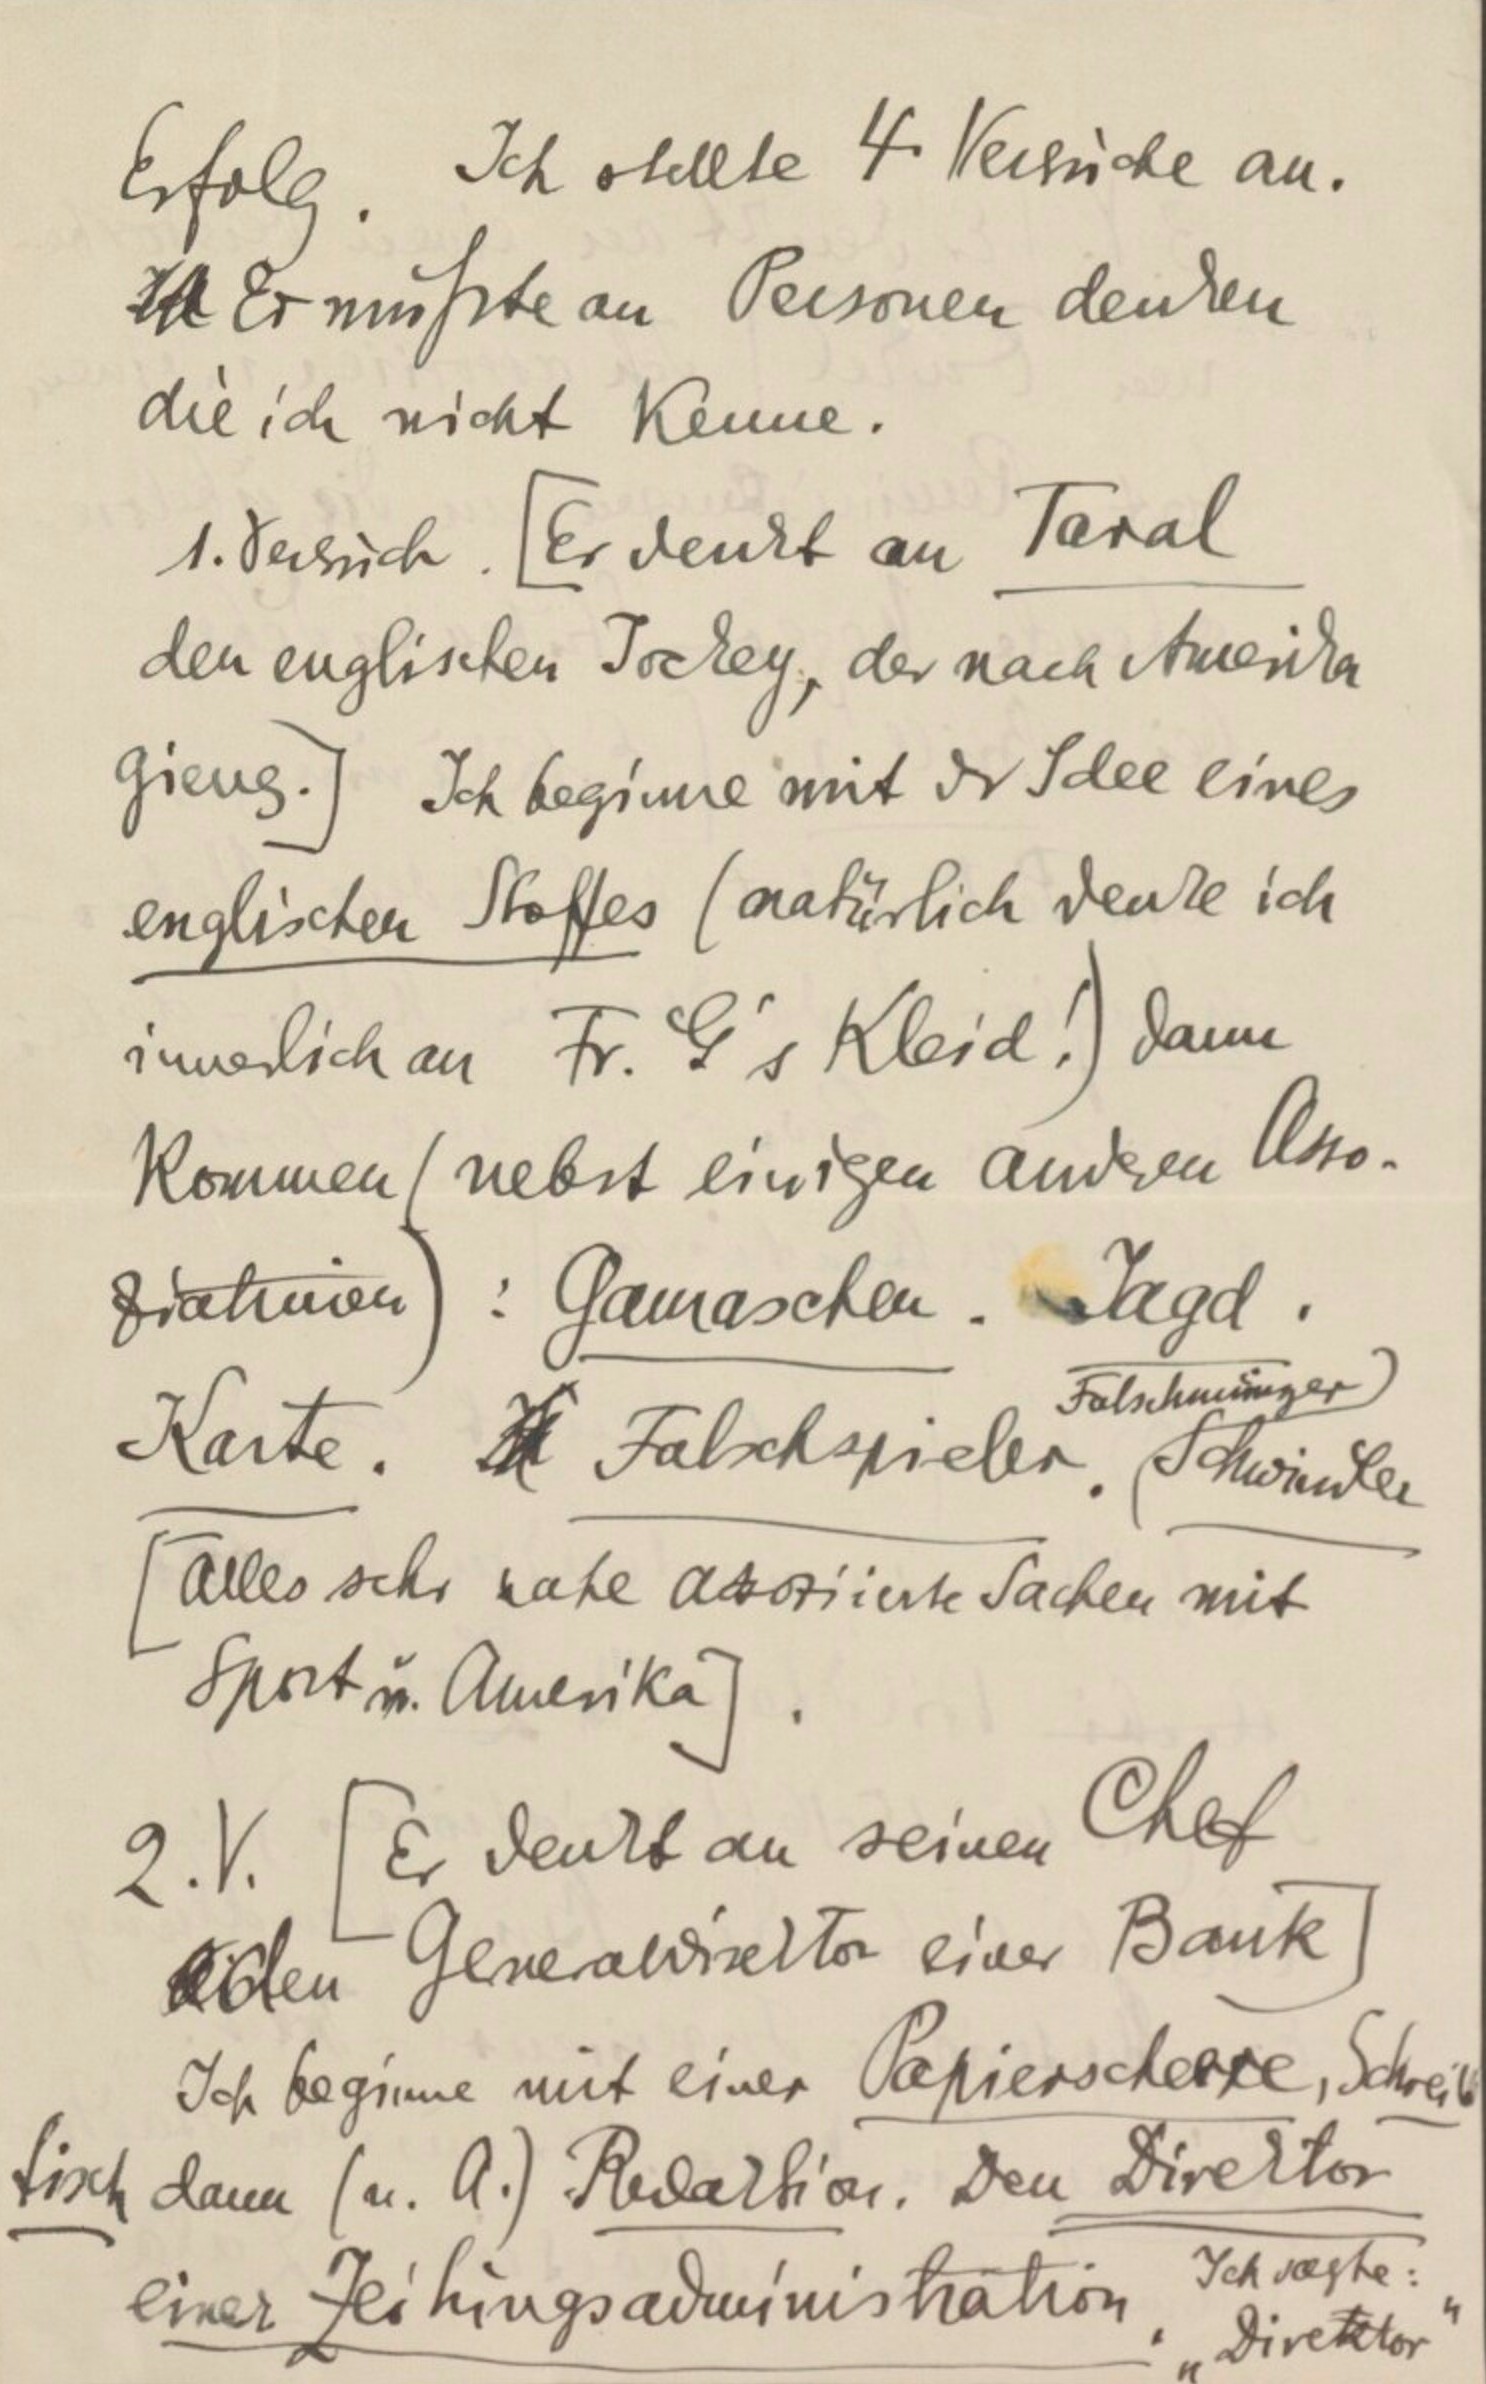 Erfolg. Ich stellte 4 Versuche an.
Er mußte an Personen denken
die ich nicht Kenne.
1. Versuch. [Er denkt an Taral
den englischen Jockey, der nach Amerika
gieng.] Ich beginne mit der Idee eines
englischen Stoffes (natürlich denke ich
innerlich an Fr. G's Kleid!) dann
Kommen (nebst einigen anderen Asso-
ziationen) : Gamaschen. Jagd.
Karte. Falschspieler. (Schwindler
Falschmünzer)
[Alles sehr nahe assoziierte Sachen mit
Sport u. Amerika].
2. V. [Er denkt an seinen Chef
den Generaldirektor einer Bank]
Ich beginne mit einer Papierschere, Schreib
tisch dann (u. A.) Redaktion. Den Direktor
einer Zeitungsadministration. Ich sagte:
„Direktor"